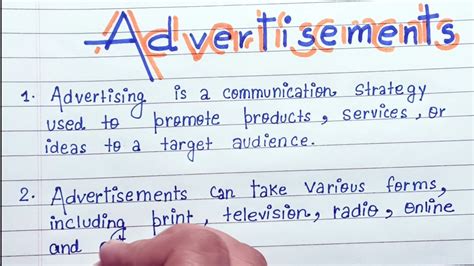 Advertisements
1. Advertising is a communication strategy
used to promote products, services, or
ideas to a target audience.
2. Advertisements can take various forms,
including print, television, radio, online
and